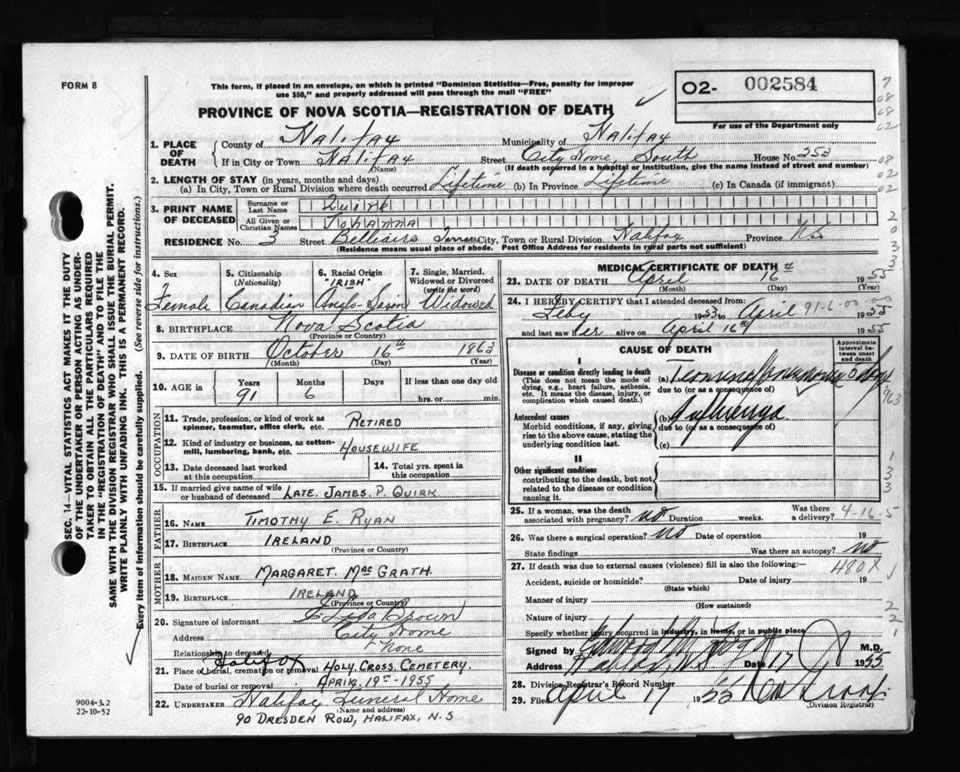 FORM 8
This form, if placed in an envelope, on which is printed "Dominion Statistics—Free, penalty for improper
use $50," and properly addressed will pass through the mail "FREE"
PROVINCE OF NOVA SCOTIA—REGISTRATION OF DEATH
O2- 002584
For use of the Department only
1. PLACE OF DEATH
County of Halifax Municipality of Halifax
If in City or Town Halifax Street City Home, South House No. 353
(Name) (If death occurred in a hospital or institution, give the name instead of street and number)
2. LENGTH OF STAY (in years, months and days)
(a) In City, Town or Rural Division where death occurred Lifetime (b) In Province Lifetime (c) In Canada (if immigrant)
3. PRINT NAME OF DECEASED
Surname or Last Name Quirk
All Given or Christian Names Johanna
RESIDENCE No. 3 Street City, Town or Rural Division Halifax Province N.S
(Residence means usual place of abode. Post Office Address for residents in rural parts not sufficient)
4. Sex Female
5. Citizenship (Nationality) Canadian
6. Racial Origin "IRISH" Anglo-Saxon
7. Single, Married, Widowed or Divorced (write the word) Widowed
8. BIRTHPLACE Nova Scotia
(Province or Country)
9. DATE OF BIRTH October 16th 1863
(Month) (Day) (Year)
10. AGE in Years Months Days If less than one day old
91 6 hrs. or min.
OCCUPATION
11. Trade, profession, or kind of work as spinner, teamster, office clerk, etc. RETIRED
12. Kind of industry or business, as cotton-mill, lumbering, bank, etc. HOUSEWIFE
13. Date deceased last worked at this occupation
14. Total yrs. spent in this occupation
15. If married give name of wife or husband of deceased LATE. JAMES. P. QUIRK
FATHER
16. NAME TIMOTHY E. RYAN
17. BIRTHPLACE IRELAND
(Province or Country)
MOTHER
18. MAIDEN NAME MARGARET. MacGRATH.
19. BIRTHPLACE IRELAND
(Province or Country)
20. Signature of informant Brown
Address City Home
Relationship to deceased None
21. Place of burial, cremation or removal Halifax HOLY. CROSS. CEMETERY.
Date of burial or removal APRIL 19TH-1955
22. UNDERTAKER Halifax Funeral Home
90 DRESDEN ROW, HALIFAX, N.S
MEDICAL CERTIFICATE OF DEATH
23. DATE OF DEATH April 16th 1955
(Month) (Day)
24. I HEREBY CERTIFY that I attended deceased from:
Feby 1953 to April 1955
91-6-00-00
and last saw her alive on April 16th 1955
CAUSE OF DEATH
Approximate interval between onset and death
I
Disease or condition directly leading to death
(This does not mean the mode of dying, e.g., heart failure, asthenia, etc. It means the disease, injury, or complication which caused death.)
(a)
due to (or as a consequence of)
Antecedent causes
Morbid conditions, if any, giving rise to the above cause, stating the underlying condition last.
(b)
due to (or as a consequence of)
(c)
II
Other significant conditions contributing to the death, but not related to the disease or condition causing it.
25. If a woman, was the death associated with pregnancy? no Duration weeks. Was there a delivery? 4-16-5
26. Was there a surgical operation? no Date of operation 19
State findings Was there an autopsy? no
27. If death was due to external causes (violence) fill in also the following:—
480X
Accident, suicide or homicide? Date of injury 19
(State which)
Manner of injury
(How sustained)
Nature of injury
Specify whether injury occurred in industry, in home, or in public place
Signed by M.D.
Address Halifax N.S Date 17 1955
28. Division Registrar's Record Number
29. Filed April 17 1955
(Division Registrar)
9004-3.2
22-10-52
SEC. 14—VITAL STATISTICS ACT MAKES IT THE DUTY
OF THE UNDERTAKER OR PERSON ACTING AS UNDER-
TAKER TO OBTAIN ALL THE PARTICULARS REQUIRED
IN THE "REGISTRATION OF DEATH" AND TO FILE THE
SAME WITH THE DIVISION REGISTRAR WHO SHALL ISSUE THE BURIAL PERMIT.
WRITE PLAINLY WITH UNFADING INK. THIS IS A PERMANENT RECORD.
Every item of information should be carefully supplied. (See reverse side for instructions.)